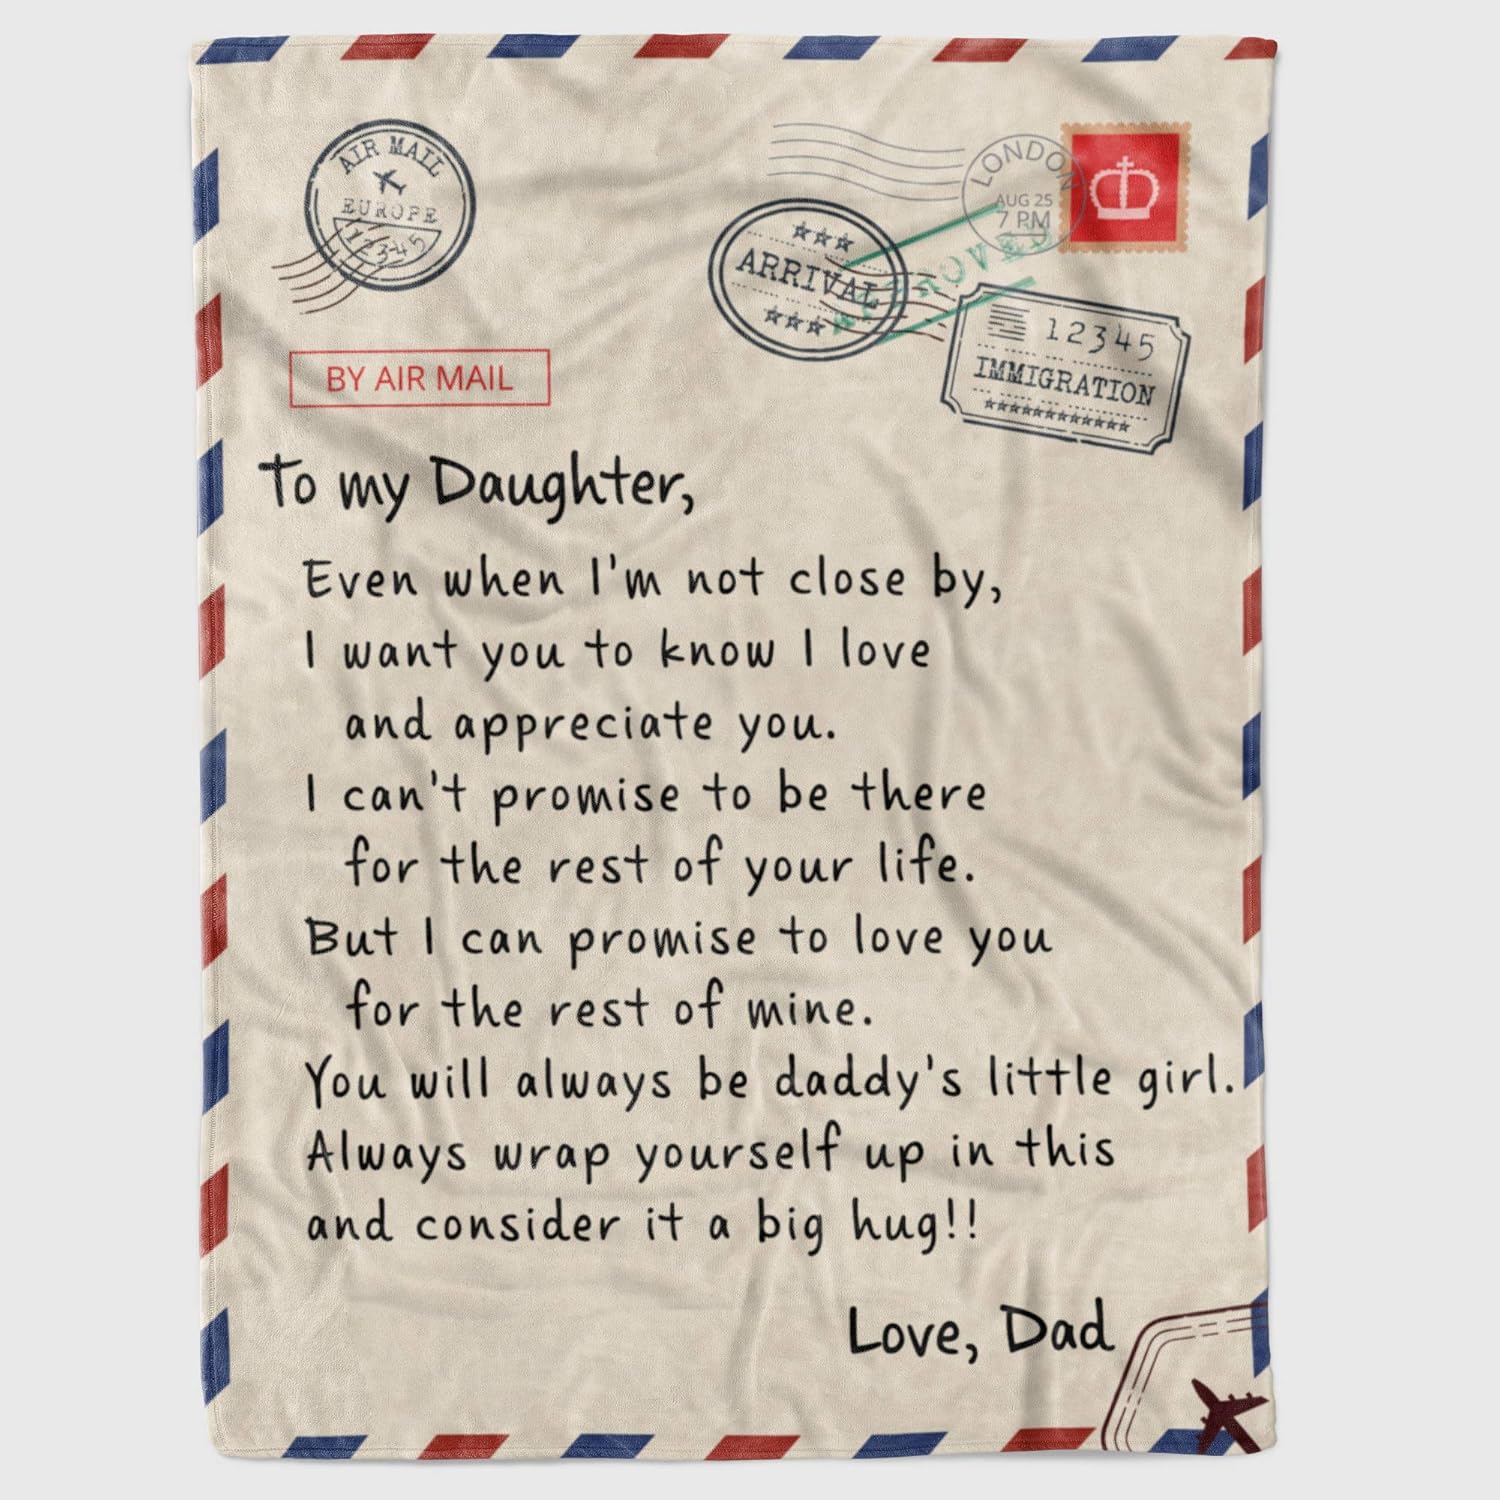 AIR MAIL
EUROPE
12345
LONDON
AUG 25
7 PM
ARRIVAL
12345
IMMIGRATION
BY AIR MAIL
To my Daughter,
Even when I'm not close by,
I want you to know I love
and appreciate you.
I can't promise to be there
for the rest of your life.
But I can promise to love you
for the rest of mine.
You will always be daddy's little girl.
Always wrap yourself up in this
and consider it a big hug!!
Love, Dad